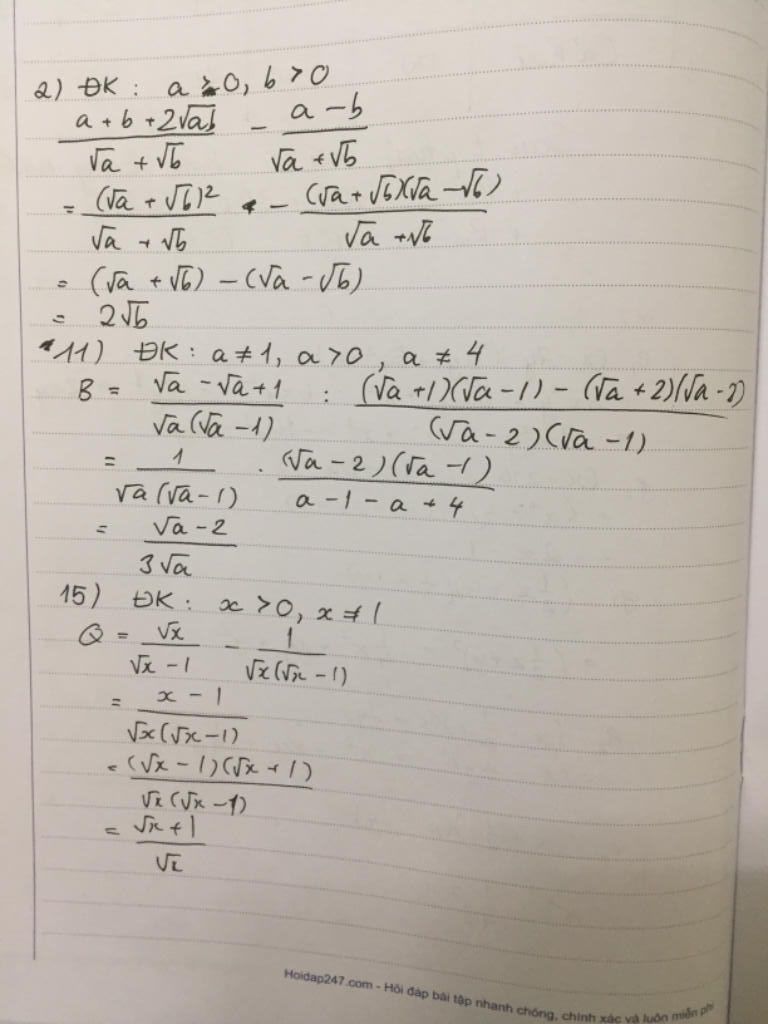 2) ĐK : a ≥ 0, b > 0
(a + b + 2√ab)/(√a + √b) - (a - b)/(√a + √b)
= (√a + √b)²/(√a + √b) - (√a + √b)(√a - √b)/(√a + √b)
= (√a + √b) - (√a - √b)
= 2√b
11) ĐK : a ≠ 1, a > 0, a ≠ 4
B = (√a - √a + 1)/(√a(√a - 1)) : ((√a + 1)(√a - 1) - (√a + 2)(√a - 2))/((√a - 2)(√a - 1))
= 1/(√a(√a - 1)) . (√a - 2)(√a - 1)/(a - 1 - a + 4)
= (√a - 2)/(3√a)
15) ĐK : x > 0, x ≠ 1
Q = √x/(√x - 1) - 1/(√x(√x - 1))
= (x - 1)/(√x(√x - 1))
= (√x - 1)(√x + 1)/(√x(√x - 1))
= (√x + 1)/√x
Hoidap247.com - Hỏi đáp bài tập nhanh chóng, chính xác và luôn miễn phí